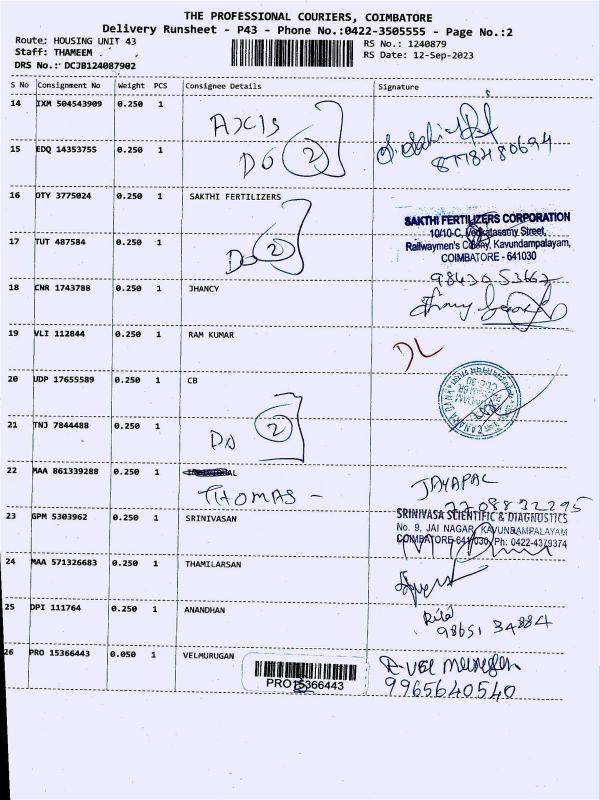 THE PROFESSIONAL COURIERS, COIMBATORE
Delivery Runsheet - P43 - Phone No.:0422-3505555 - Page No.:2
Route: HOUSING UNIT 43
RS No.: 1240879
Staff: THAMEEM
RS Date: 12-Sep-2023
DRS No.: DCJB124087902
S No Consignment No Weight PCS Consignee Details Signature
14 IXM 504543909 0.250 1
AXCIS
15 EDQ 14353755 0.250 1
DO 2
8778480694
16 OTY 3775024 0.250 1 SAKTHI FERTILIZERS
SAKTHI FERTILIZERS CORPORATION
10/10-C, Venkatasamy Street,
17 TUT 487584 0.250 1
Do 2
Railwaymen's Colony, Kavundampalayam,
COIMBATORE - 641030
98430 53667
18 CNR 1743788 0.250 1 JHANCY
19 VLI 112844 0.250 1 RAM KUMAR
DL
20 UDP 17655589 0.250 1 CB
CANARA BANK
21 TNJ 7844488 0.250 1
DO 2
22 MAA 861339288 0.250 1
THOMAS -
JAYAPAL
7708832295
23 GPM 5303962 0.250 1 SRINIVASAN
SRINIVASA SCIENTIFIC & DIAGNOSTICS
No. 9, JAI NAGAR, KAVUNDAMPALAYAM
COIMBATORE-641 030, Ph: 0422-4379374
24 MAA 571326683 0.250 1 THAMILARSAN
25 DPI 111764 0.250 1 ANANDHAN
98651 34884
26 PRO 15366443 0.050 1 VELMURUGAN
PRO15366443
9965640540